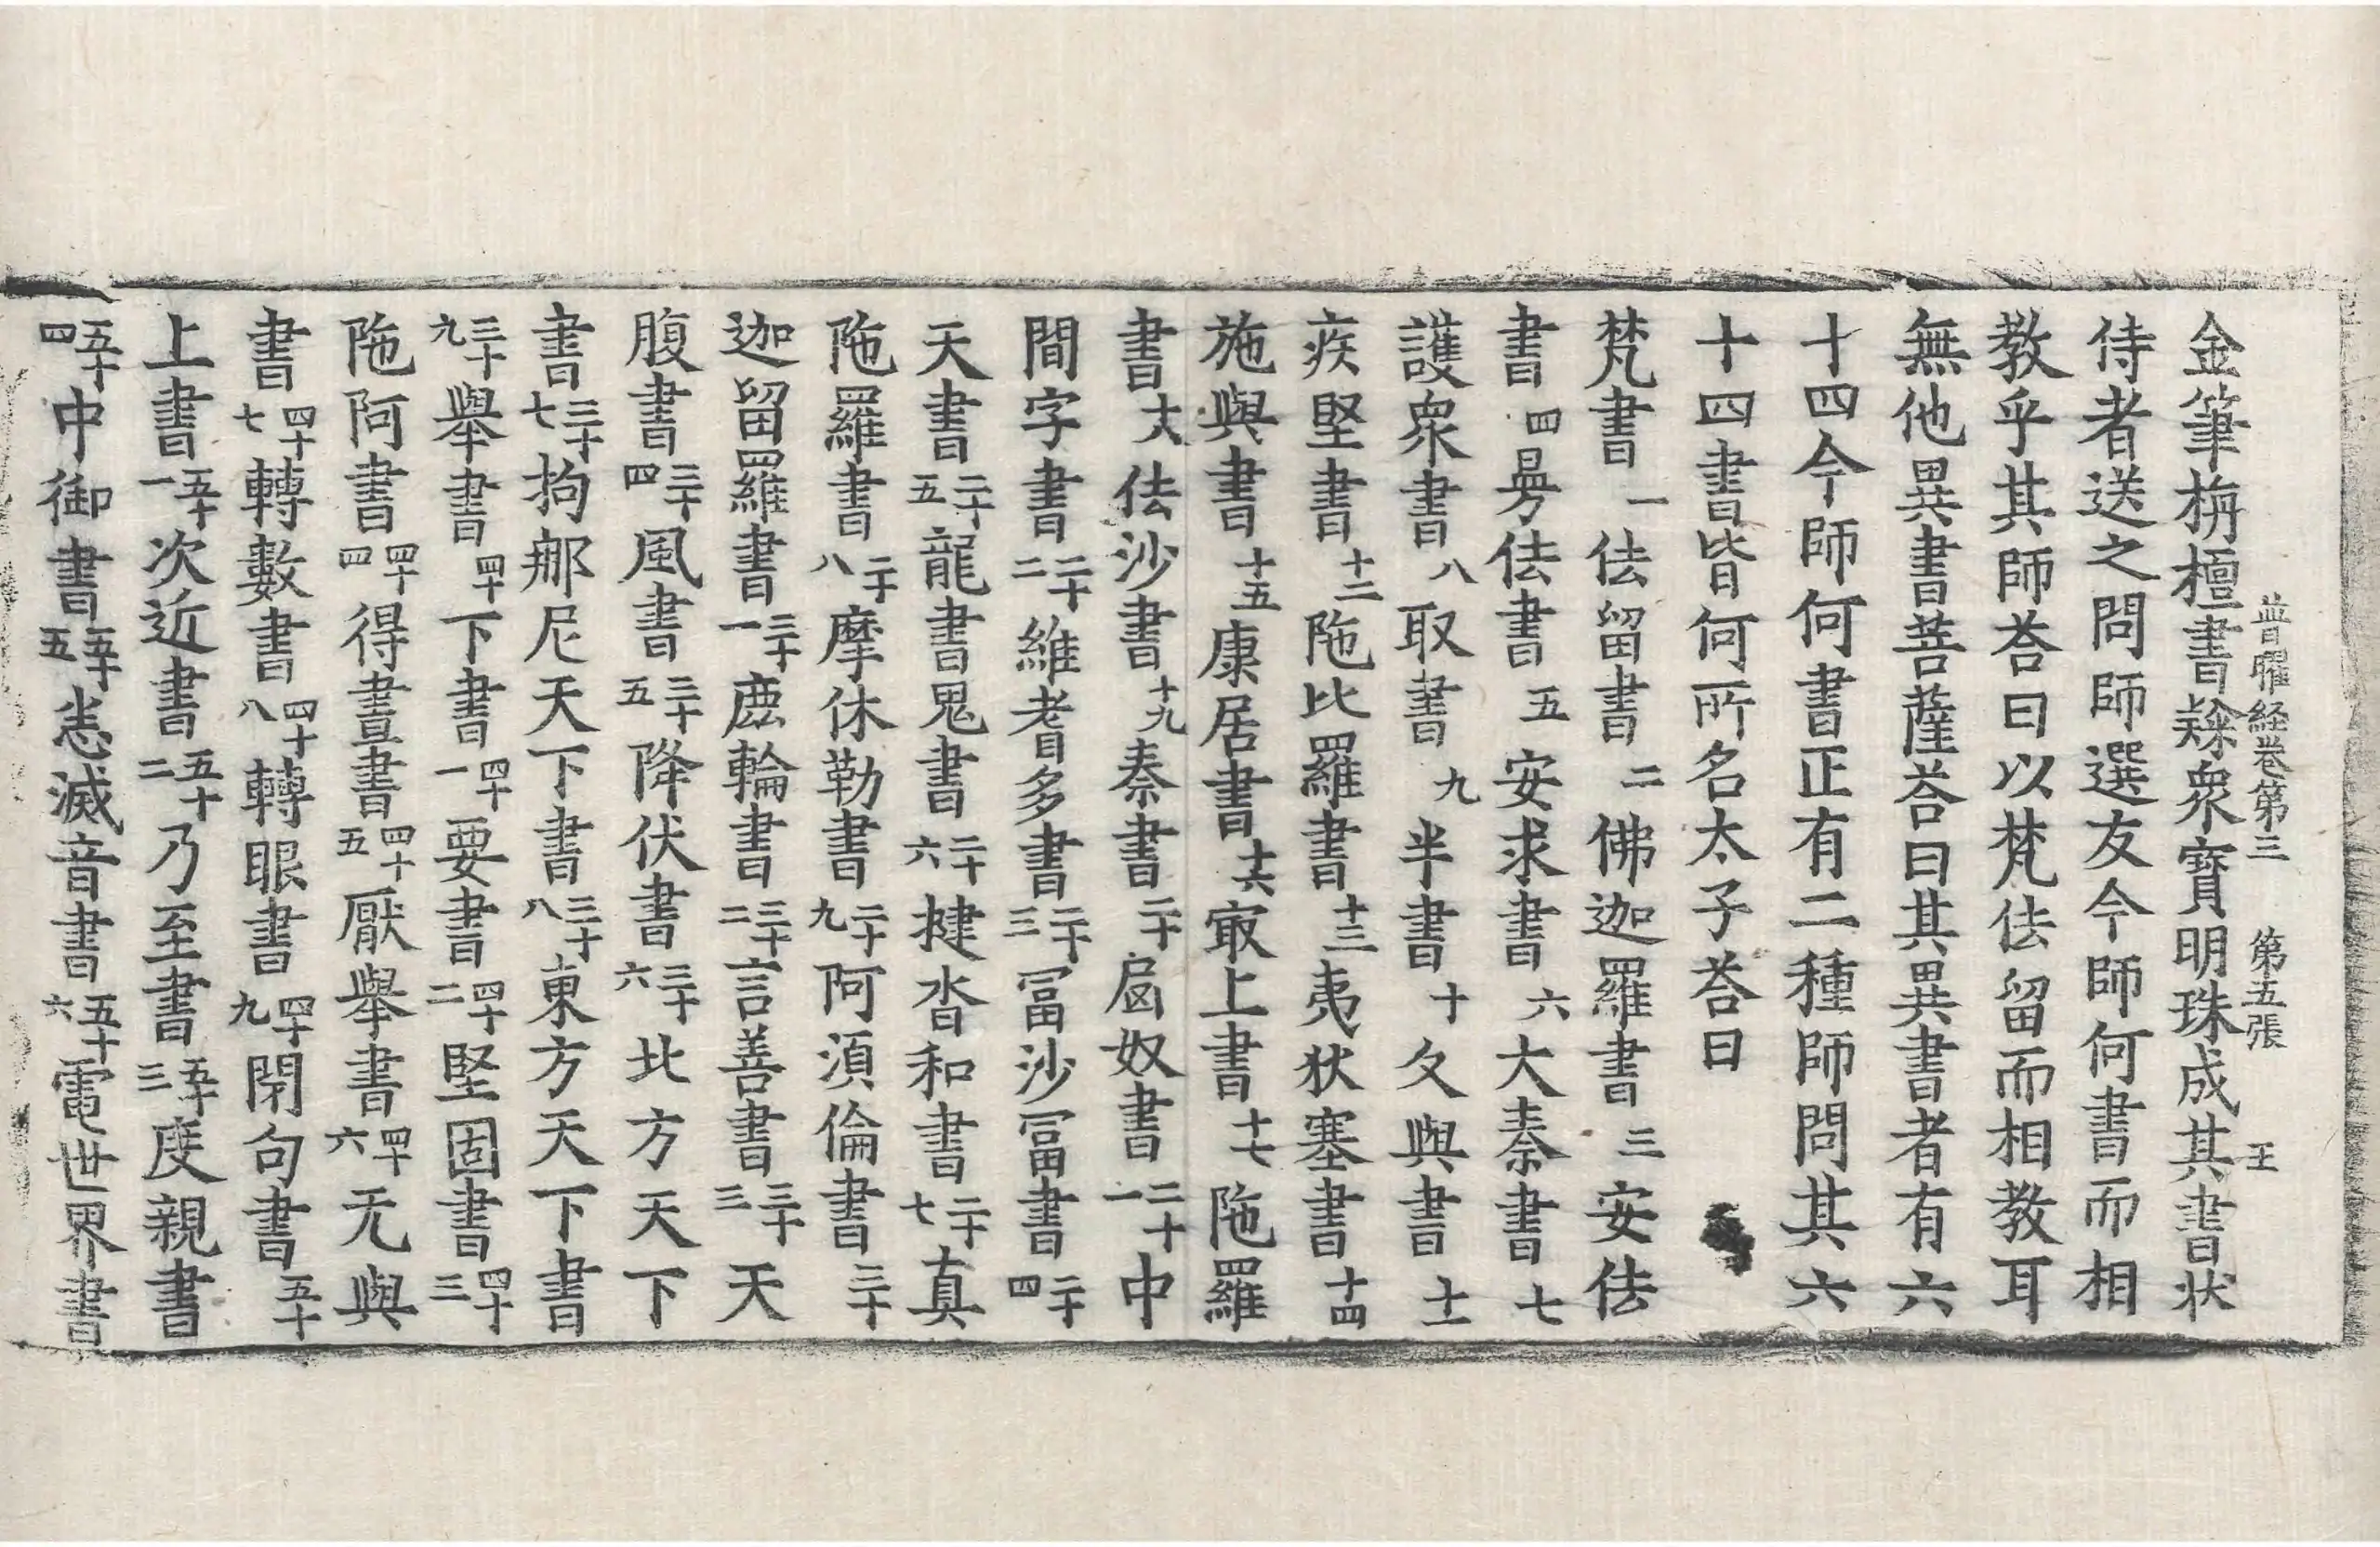 金筆栴檀書𨽻衆寶明珠成其書狀
普曜経卷第三　第五張　王
侍者送之問師選友今師何書而相
教乎其師荅曰以梵佉留而相教耳
無他異書菩薩荅曰其異書者有六
十四今師何書正有二種師問其六
十四書皆何所名太子荅曰
梵書一佉留書二佛迦羅書三安佉
書四曼佉書五安求書六大秦書七
護衆書八取書九半書十久與書十一
疾堅書十二陁比羅書十三夷狄塞書十四
施與書十五康居書十六㝡上書十七陁羅
書十八佉沙書十九秦書二十匈奴書二十一中
間字書二十二維耆多書二十三冨沙冨書二十四
天書二十五龍書鬼書二十六揵沓和書二十七真
陁羅書二十八摩休勒書二十九阿須倫書三十
迦留羅書三十一鹿輪書三十二言善書三十三天
腹書三十四風書三十五降伏書三十六北方天下
書三十七拘那尼天下書三十八東方天下書
三十九舉書四十下書四十一要書四十二堅固書四十三
陁阿書四十四得晝書四十五厭舉書四十六无與
書四十七轉數書四十八轉眼書四十九閇句書五十
上書五十一次近書五十二乃至書五十三度親書
五十四中御書五十五恙滅音書五十六電世界書